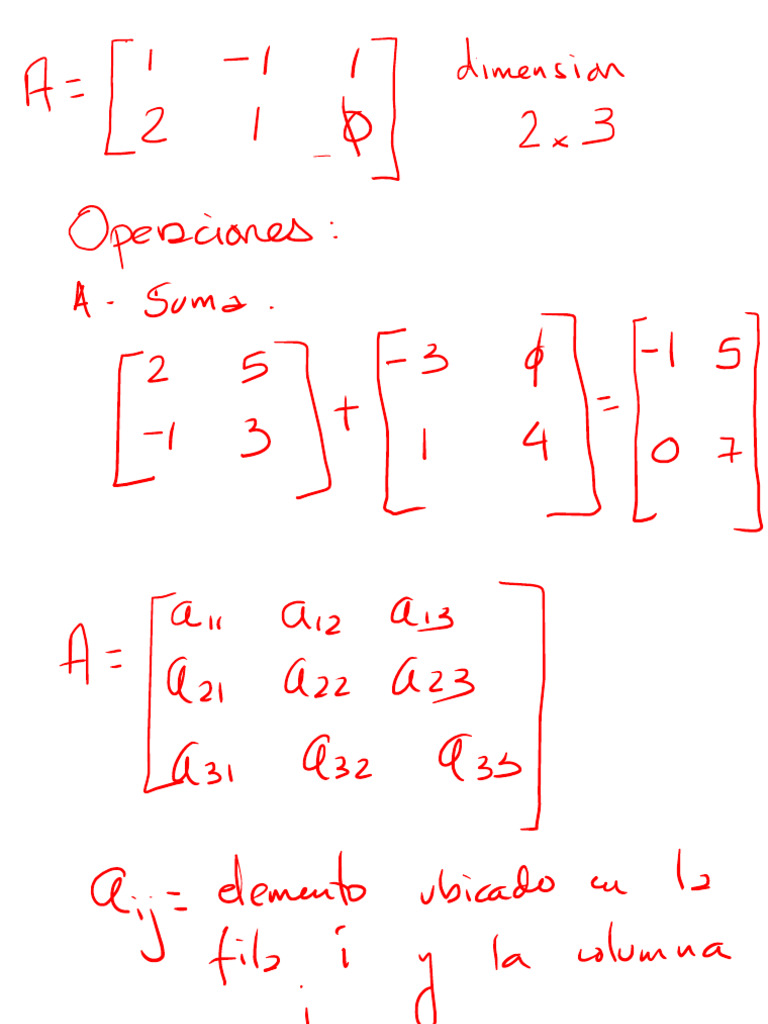 A = [ 1 -1 1 dimension
2 1 0 ] 2 x 3
Operaciones:
A - Suma.
[ 2 5 ] + [ -3 0 ] = [ -1 5 ]
[ -1 3 ] [ 1 4 ] [ 0 7 ]
A = [ a11 a12 a13
a21 a22 a23
a31 a32 a33 ]
aij = elemento ubicado en la
fila i y la columna
j